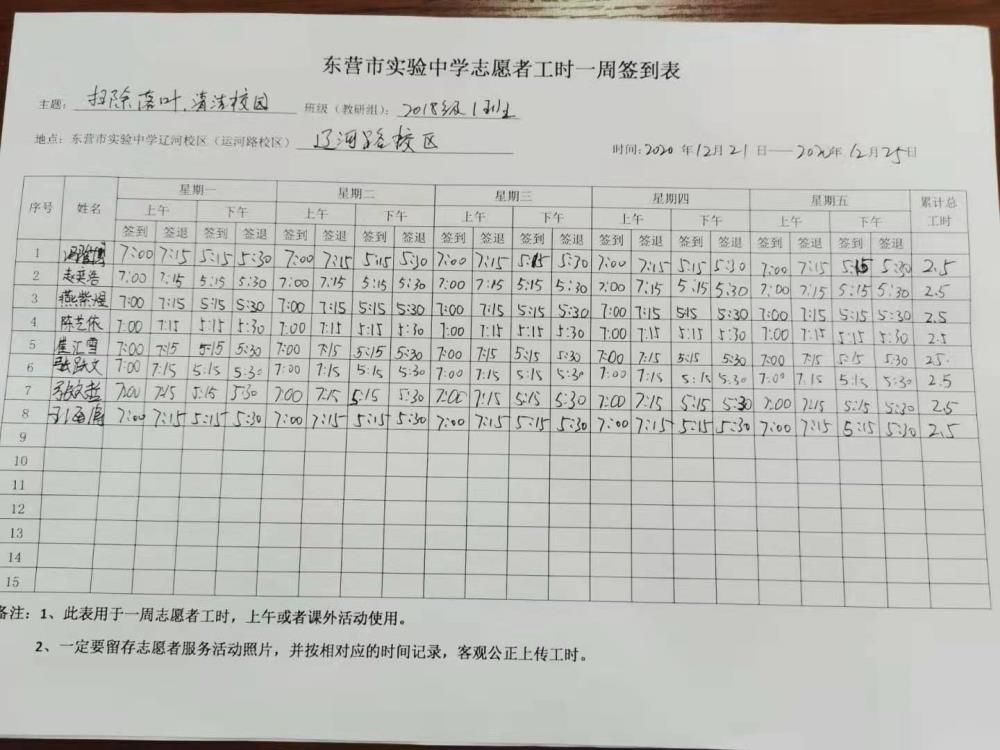 东营市实验中学志愿者工时一周签到表
主题: 扫除落叶、清洁校园 班级（教研组）: 2018级1班
地点: 东营市实验中学辽河校区（运河路校区） 辽河路校区 时间: 2020 年 12 月 21 日——2020年 12 月 25 日
序号 姓名 星期一 星期二 星期三 星期四 星期五 累计总工时
上午 下午 上午 下午 上午 下午 上午 下午 上午 下午
签到 签退 签到 签退 签到 签退 签到 签退 签到 签退 签到 签退 签到 签退 签到 签退 签到 签退 签到 签退
1 7:00 7:15 5:15 5:30 7:00 7:15 5:15 5:30 7:00 7:15 5:15 5:30 7:00 7:15 5:15 5:30 7:00 7:15 5:15 5:30 2.5
2 赵奕浩 7:00 7:15 5:15 5:30 7:00 7:15 5:15 5:30 7:00 7:15 5:15 5:30 7:00 7:15 5:15 5:30 7:00 7:15 5:15 5:30 2.5
3 燕紫煜 7:00 7:15 5:15 5:30 7:00 7:15 5:15 5:30 7:00 7:15 5:15 5:30 7:00 7:15 5:15 5:30 7:00 7:15 5:15 5:30 2.5
4 陈艺依 7:00 7:15 5:15 5:30 7:00 7:15 5:15 5:30 7:00 7:15 5:15 5:30 7:00 7:15 5:15 5:30 7:00 7:15 5:15 5:30 2.5
5 崔汇雪 7:00 7:15 5:15 5:30 7:00 7:15 5:15 5:30 7:00 7:15 5:15 5:30 7:00 7:15 5:15 5:30 7:00 7:15 5:15 5:30 2.5
6 张跃文 7:00 7:15 5:15 5:30 7:00 7:15 5:15 5:30 7:00 7:15 5:15 5:30 7:00 7:15 5:15 5:30 7:00 7:15 5:15 5:30 2.5
7 7:00 7:15 5:15 5:30 7:00 7:15 5:15 5:30 7:00 7:15 5:15 5:30 7:00 7:15 5:15 5:30 7:00 7:15 5:15 5:30 2.5
8 7:00 7:15 5:15 5:30 7:00 7:15 5:15 5:30 7:00 7:15 5:15 5:30 7:00 7:15 5:15 5:30 7:00 7:15 5:15 5:30 2.5
9
10
11
12
13
14
15
备注：1、此表用于一周志愿者工时，上午或者课外活动使用。
2、一定要留存志愿者服务活动照片，并按相对应的时间记录，客观公正上传工时。